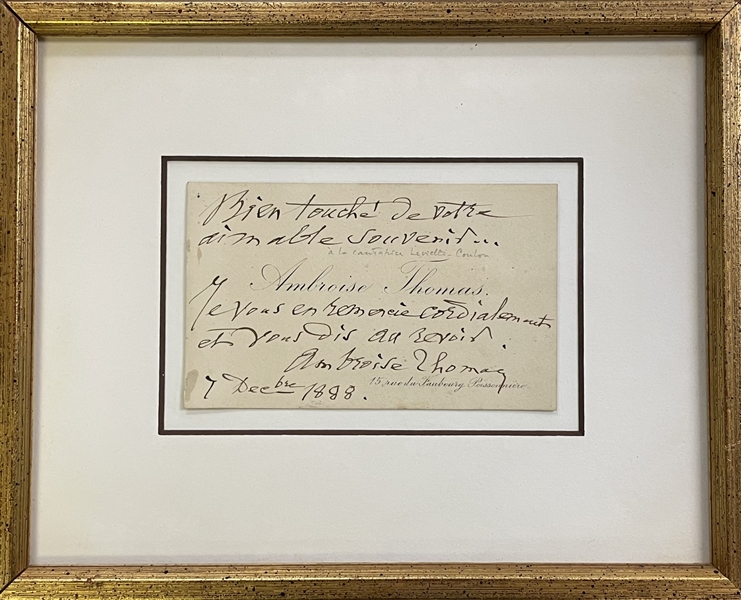 Bien touché de votre
aimable souvenir...
à la cantatrice Coulon
Ambroise Thomas.
Je vous en remercie cordialement
et vous dis au revoir.
Ambroise Thomas
15, rue du Faubourg Poissonnière.
7 Decbre 1888.